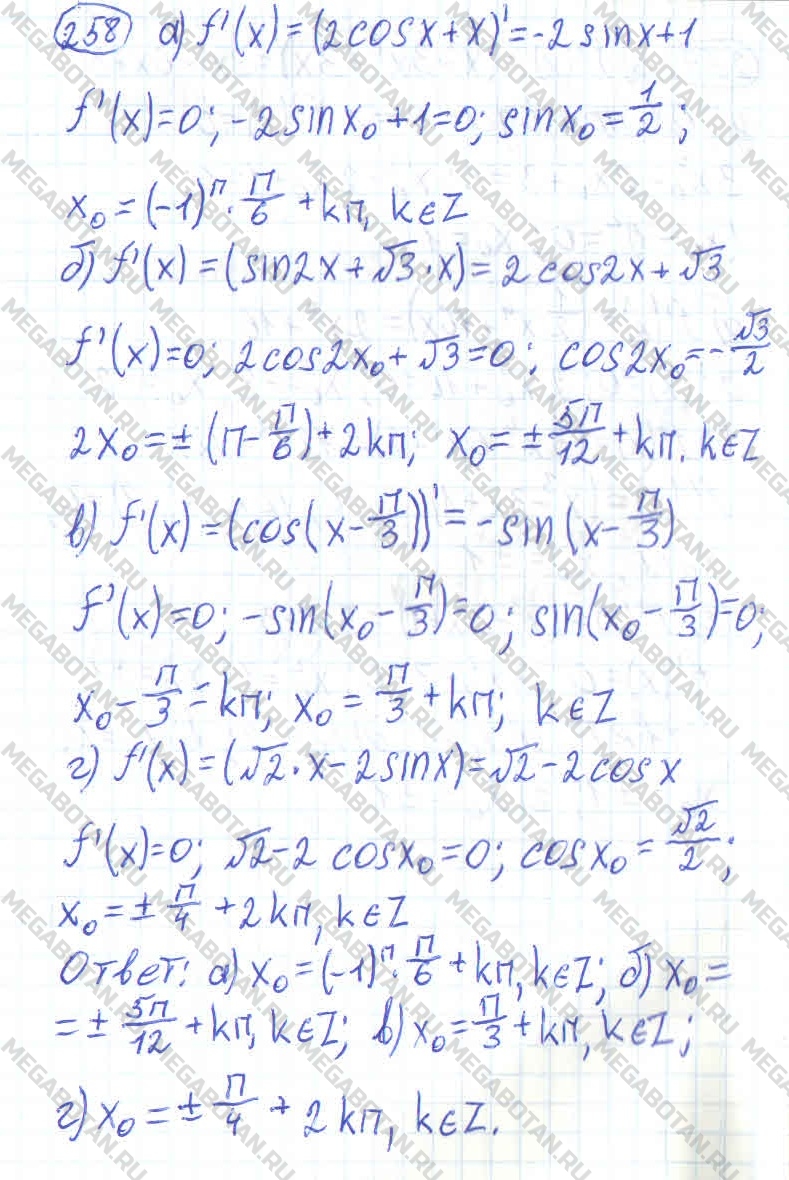 258 а) f'(x)=(2cosx+x)'=-2sinx+1
f'(x)=0; -2sinx₀+1=0; sinx₀=1/2;
x₀=(-1)ⁿ·п/6+kп, k∈Z
б) f'(x)=(sin2x+√3·x)=2cos2x+√3
f'(x)=0; 2cos2x₀+√3=0; cos2x₀=-√3/2
2x₀=±(п-п/6)+2kп; x₀=±5п/12+kп. k∈Z
в) f'(x)=(cos(x-п/3))'=-sin(x-п/3)
f'(x)=0; -sin(x₀-п/3)=0; sin(x₀-п/3)=0;
x₀-п/3=kп; x₀=п/3+kп; k∈Z
г) f'(x)=(√2·x-2sinx)=√2-2cosx
f'(x)=0; √2-2cosx₀=0; cosx₀=√2/2;
x₀=±п/4+2kп, k∈Z
Ответ: а) x₀=(-1)ⁿ·п/6+kп, k∈Z; б) x₀=
=±5п/12+kп, k∈Z; в) x₀=п/3+kп, k∈Z;
г) x₀=±п/4+2kп, k∈Z.
MEGABOTAN.RU